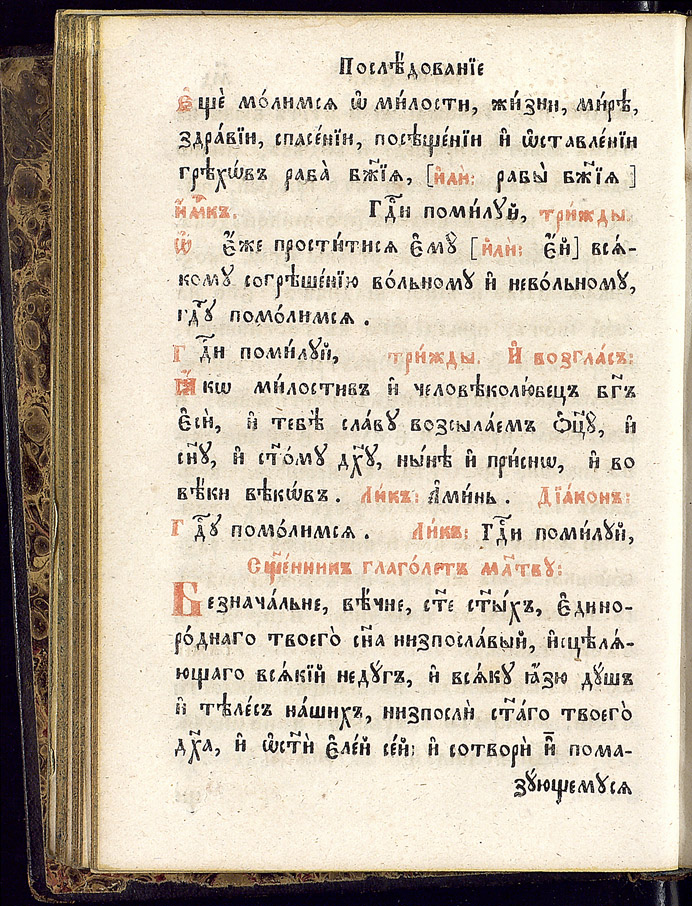 Послѣ́дованїе
Є҆щѐ мо́лимсѧ ѡ҆ ми́лости, жи́зни, ми́рѣ,
здра́вїи, спасе́нїи, посѣще́нїи и҆ ѡ҆ставле́нїи
грѣхѡ́въ раба̀ бж҃їѧ, [и҆лѝ: рабы̀ бж҃їѧ ]
и҆м҃къ. Гдⷭ҇и поми́лꙋй, три́жды.
Ѡ҆ є҆́же прости́тисѧ є҆мꙋ̀ [и҆лѝ: є҆́й] всѧ́-
комꙋ согрѣше́нїю во́льномꙋ и҆ нево́льномꙋ,
гдⷭ҇ꙋ помо́лимсѧ .
Гдⷭ҇и поми́лꙋй, три́жды. И҆ возгла́съ:
Ꙗ҆́кѡ ми́лостивъ и҆ человѣколю́бецъ бг҃ъ
є҆сѝ, и҆ тебѣ̀ сла́вꙋ возсыла́емъ ѻ҆ц҃ꙋ̀, и҆
сн҃ꙋ, и҆ ст҃о́мꙋ дх҃ꙋ, ны́нѣ и҆ при́снѡ, и҆ во
вѣ́ки вѣкѡ́въ . Ли́къ: А҆ми́нь . Дїа́конъ:
Гдⷭ҇ꙋ помо́лимсѧ . Ли́къ: Гдⷭ҇и поми́лꙋй,
Сщ҃е́нникъ глаго́летъ мл҃твꙋ:
Безнача́льне, вѣ́чне, ст҃е ст҃ы́хъ, є҆дино-
ро́днаго твоего̀ сн҃а низпосла́вый, и҆сцѣлѧ́-
ющаго всѧ́кїй недꙋ́гъ, и҆ всѧ́кꙋ ꙗ҆́зю дꙋ́шъ
и҆ тѣле́съ на́шихъ, низпослѝ ст҃а́го твоего̀
дх҃а, и҆ ѡ҆ст҃ѝ є҆ле́й се́й: и҆ сотворѝ и҆̀ пома-
зꙋ́ющемꙋсѧ